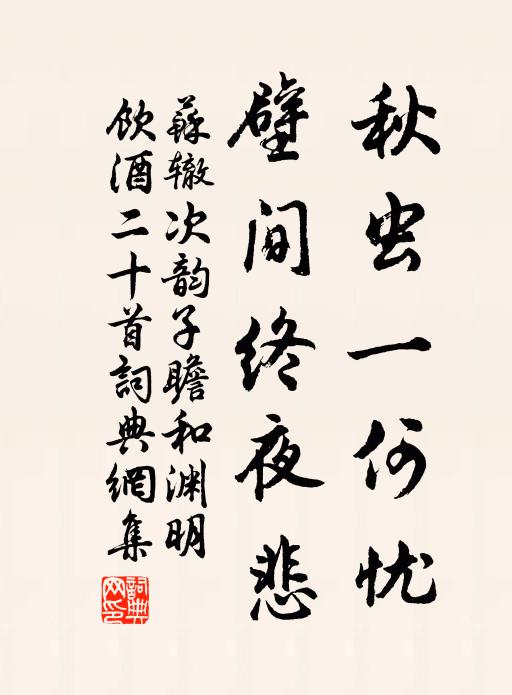 秋虫一何忧
壁间终夜悲
蘇辙次韵子瞻和渊明
饮酒二十首詞典網集
詞典網印